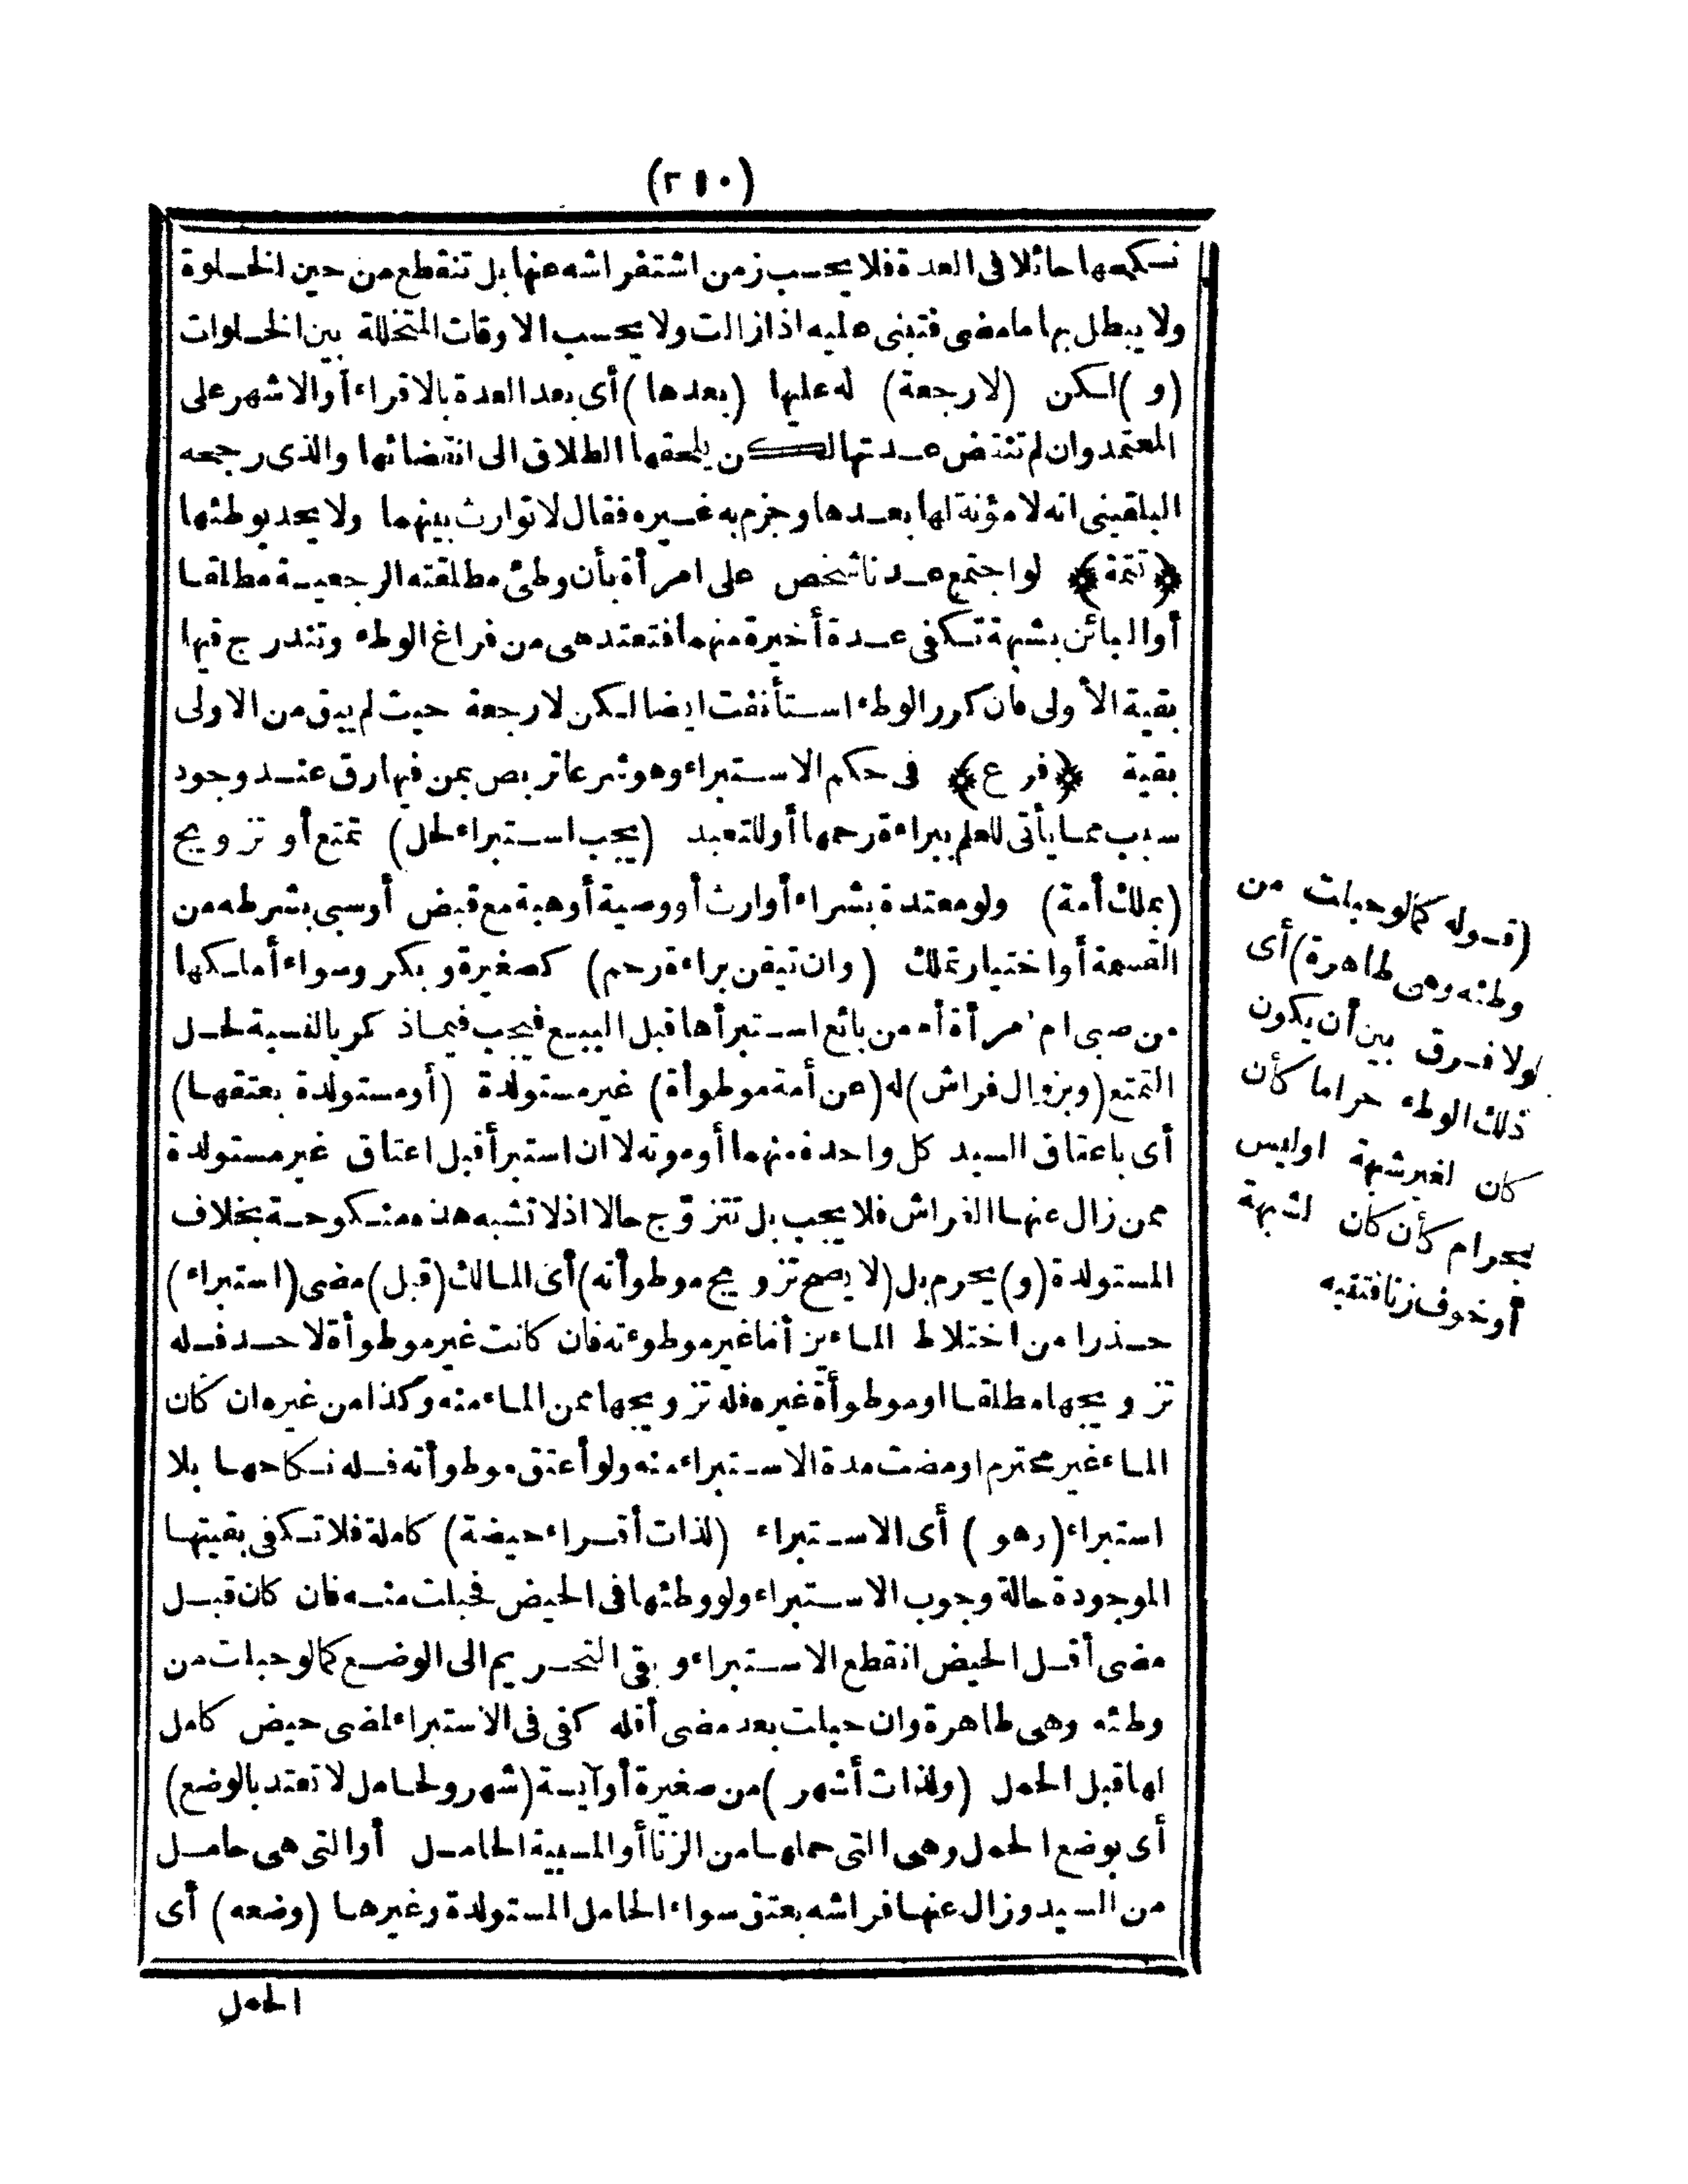 (٢١٠)
نكحها حائلا فى العدة فلا يحسب زمن اشتفراشه عنها بل تنقطع من حين الخلوة
ولا يبطل بها ما مضى فتبنى عليه اذا زالت ولا يحسب الاوقات المتخللة بين الخلوات
(و) لكن (لا رجعة) له عليها (بعدها) أى بعد العدة بالاقراء أو الاشهر على
المعتمد وان لم تنقض عدتها لكن يلحقها الطلاق الى انقضائها والذى رجحه
البلقينى انه لا مؤنة لها بعدها وجزم به غيره فقال لا توارث بينهما ولا يحد بوطئها
﴿تتمة﴾ لو اجتمع عدتا شخص على امرأة بأن وطئ مطلقته الرجعية مطلقا
أو البائن بشبهة تكفى عدة أخيرة منهما فتعتد هى من فراغ الوطء وتندرج فيها
بقية الأولى فان كرر الوطء استأنفت ايضا لكن لا رجعة حيث لم يبق من الاولى
بقية ﴿فرع﴾ فى حكم الاستبراء وهو شرعا تربص بمن فيها رق عند وجود
سبب مما يأتى للعلم ببراءة رحمها أو للتعبد (يجب استبراء لحل) تمتع أو تزويج
(بملك أمة) ولو معتدة بشراء أو ارث أو وصية أو هبة مع قبض أو سبى بشرطه من
القسمة أو اختيار تملك (وان تيقن براءة رحم) كصغيرة وبكر وسواء أملكها
من صبى ام امرأة أم من بائع استبرأها قبل البيع فيجب فيما ذكر بالنسبة لحل
التمتع (وبزوال فراش) له (عن أمة موطوأة) غير مستولدة (أو مستولدة بعتقها)
أى باعتاق السيد كل واحدة منهما أو موته لا ان استبرأ قبل اعتاق غير مستولدة
ممن زال عنها الفراش فلا يجب بل تتزوّج حالا اذ لا تشبه هذه منكوحة بخلاف
المستولدة (و) يحرم بل (لا يصح تزويج موطوأته) أى المالك (قبل) مضى (استبراء)
حذرا من اختلاط الماءين أما غير موطوءته فان كانت غير موطوأة لاحد فله
تزويجها مطلقا او موطوأة غيره فله تزويجها ممن الماء منه وكذا من غيره ان كان
الماء غير محترم او مضت مدة الاستبراء منه ولو أعتق موطوأته فله نكاحها بلا
استبراء (وهو) أى الاستبراء (لذات أقراء حيضة) كاملة فلا تكفى بقيتها
الموجودة حالة وجوب الاستبراء ولو وطئها فى الحيض فحبلت منه فان كان قبل
مضى أقل الحيض انقطع الاستبراء وبقى التحريم الى الوضع كما لو حبلت من
وطئه وهى طاهرة وان حبلت بعد مضى أقله كفى فى الاستبراء لمضى حيض كامل
لها قبل الحمل (ولذات أشهر) من صغيرة أو آيسة (شهر ولحامل لا تعتد بالوضع)
أى بوضع الحمل وهى التى حملها من الزنا أو المسبية الحامل أو التى هى حامل
من السيد وزال عنها فراشه بعتق سواء الحامل المستولدة وغيرها (وضعه) أى
الحمل
(قوله كما لو حبلت من
وطئه وهى طاهرة) أى
ولا فرق بين أن يكون
ذلك الوطء حراما كأن
كان لغير شبهة او ليس
بحرام كأن كان لشبهة
أو خوف زنا فتقبه